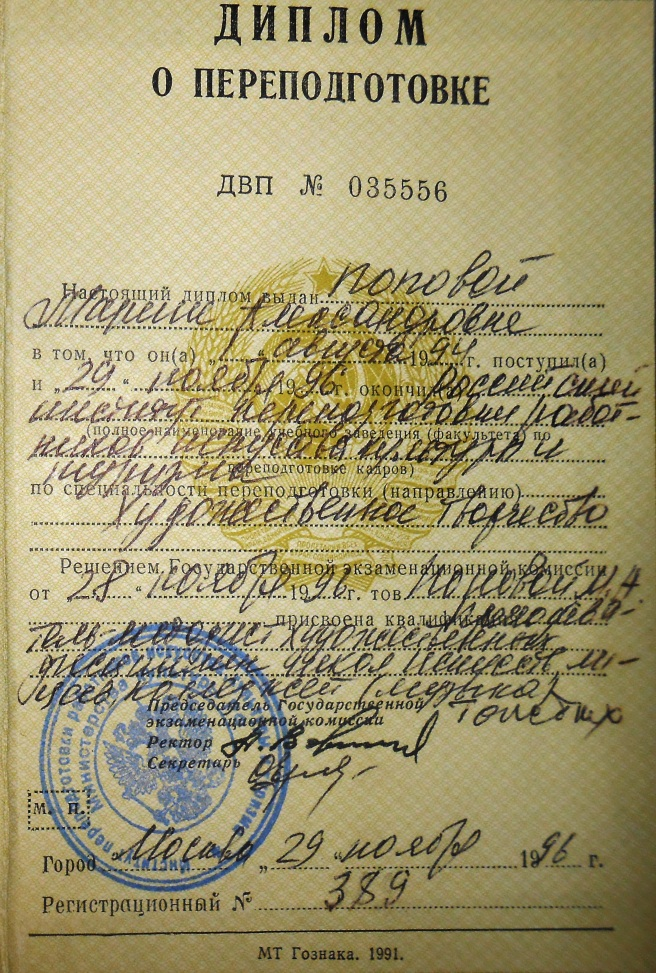 ДИПЛОМ
О ПЕРЕПОДГОТОВКЕ
ДВП № 035556
Настоящий диплом выдан Поповой
Марине Александровне
в том, что он(а) „ “ августа 1994 г. поступил(а)
и „29“ ноября 1996 г. окончил(а) Российский
институт переподготовки работ-
(полное наименование учебного заведения (факультета) по
ников искусства, культуры и
переподготовке кадров)
туризма
по специальности переподготовки (направлению)
Художественное творчество
Решением Государственной экзаменационной комиссии
от „28“ ноября 1996 г. тов Поповой М.А
присвоена квалификация Преподава-
тель методист художественных
дисциплин школ искусств
(музыка)
Председатель Государственной
экзаменационной комиссии
Ректор
Секретарь
М. П.
Город Москва „29“ ноября 1996 г.
Регистрационный № 389
МТ Гознака. 1991.